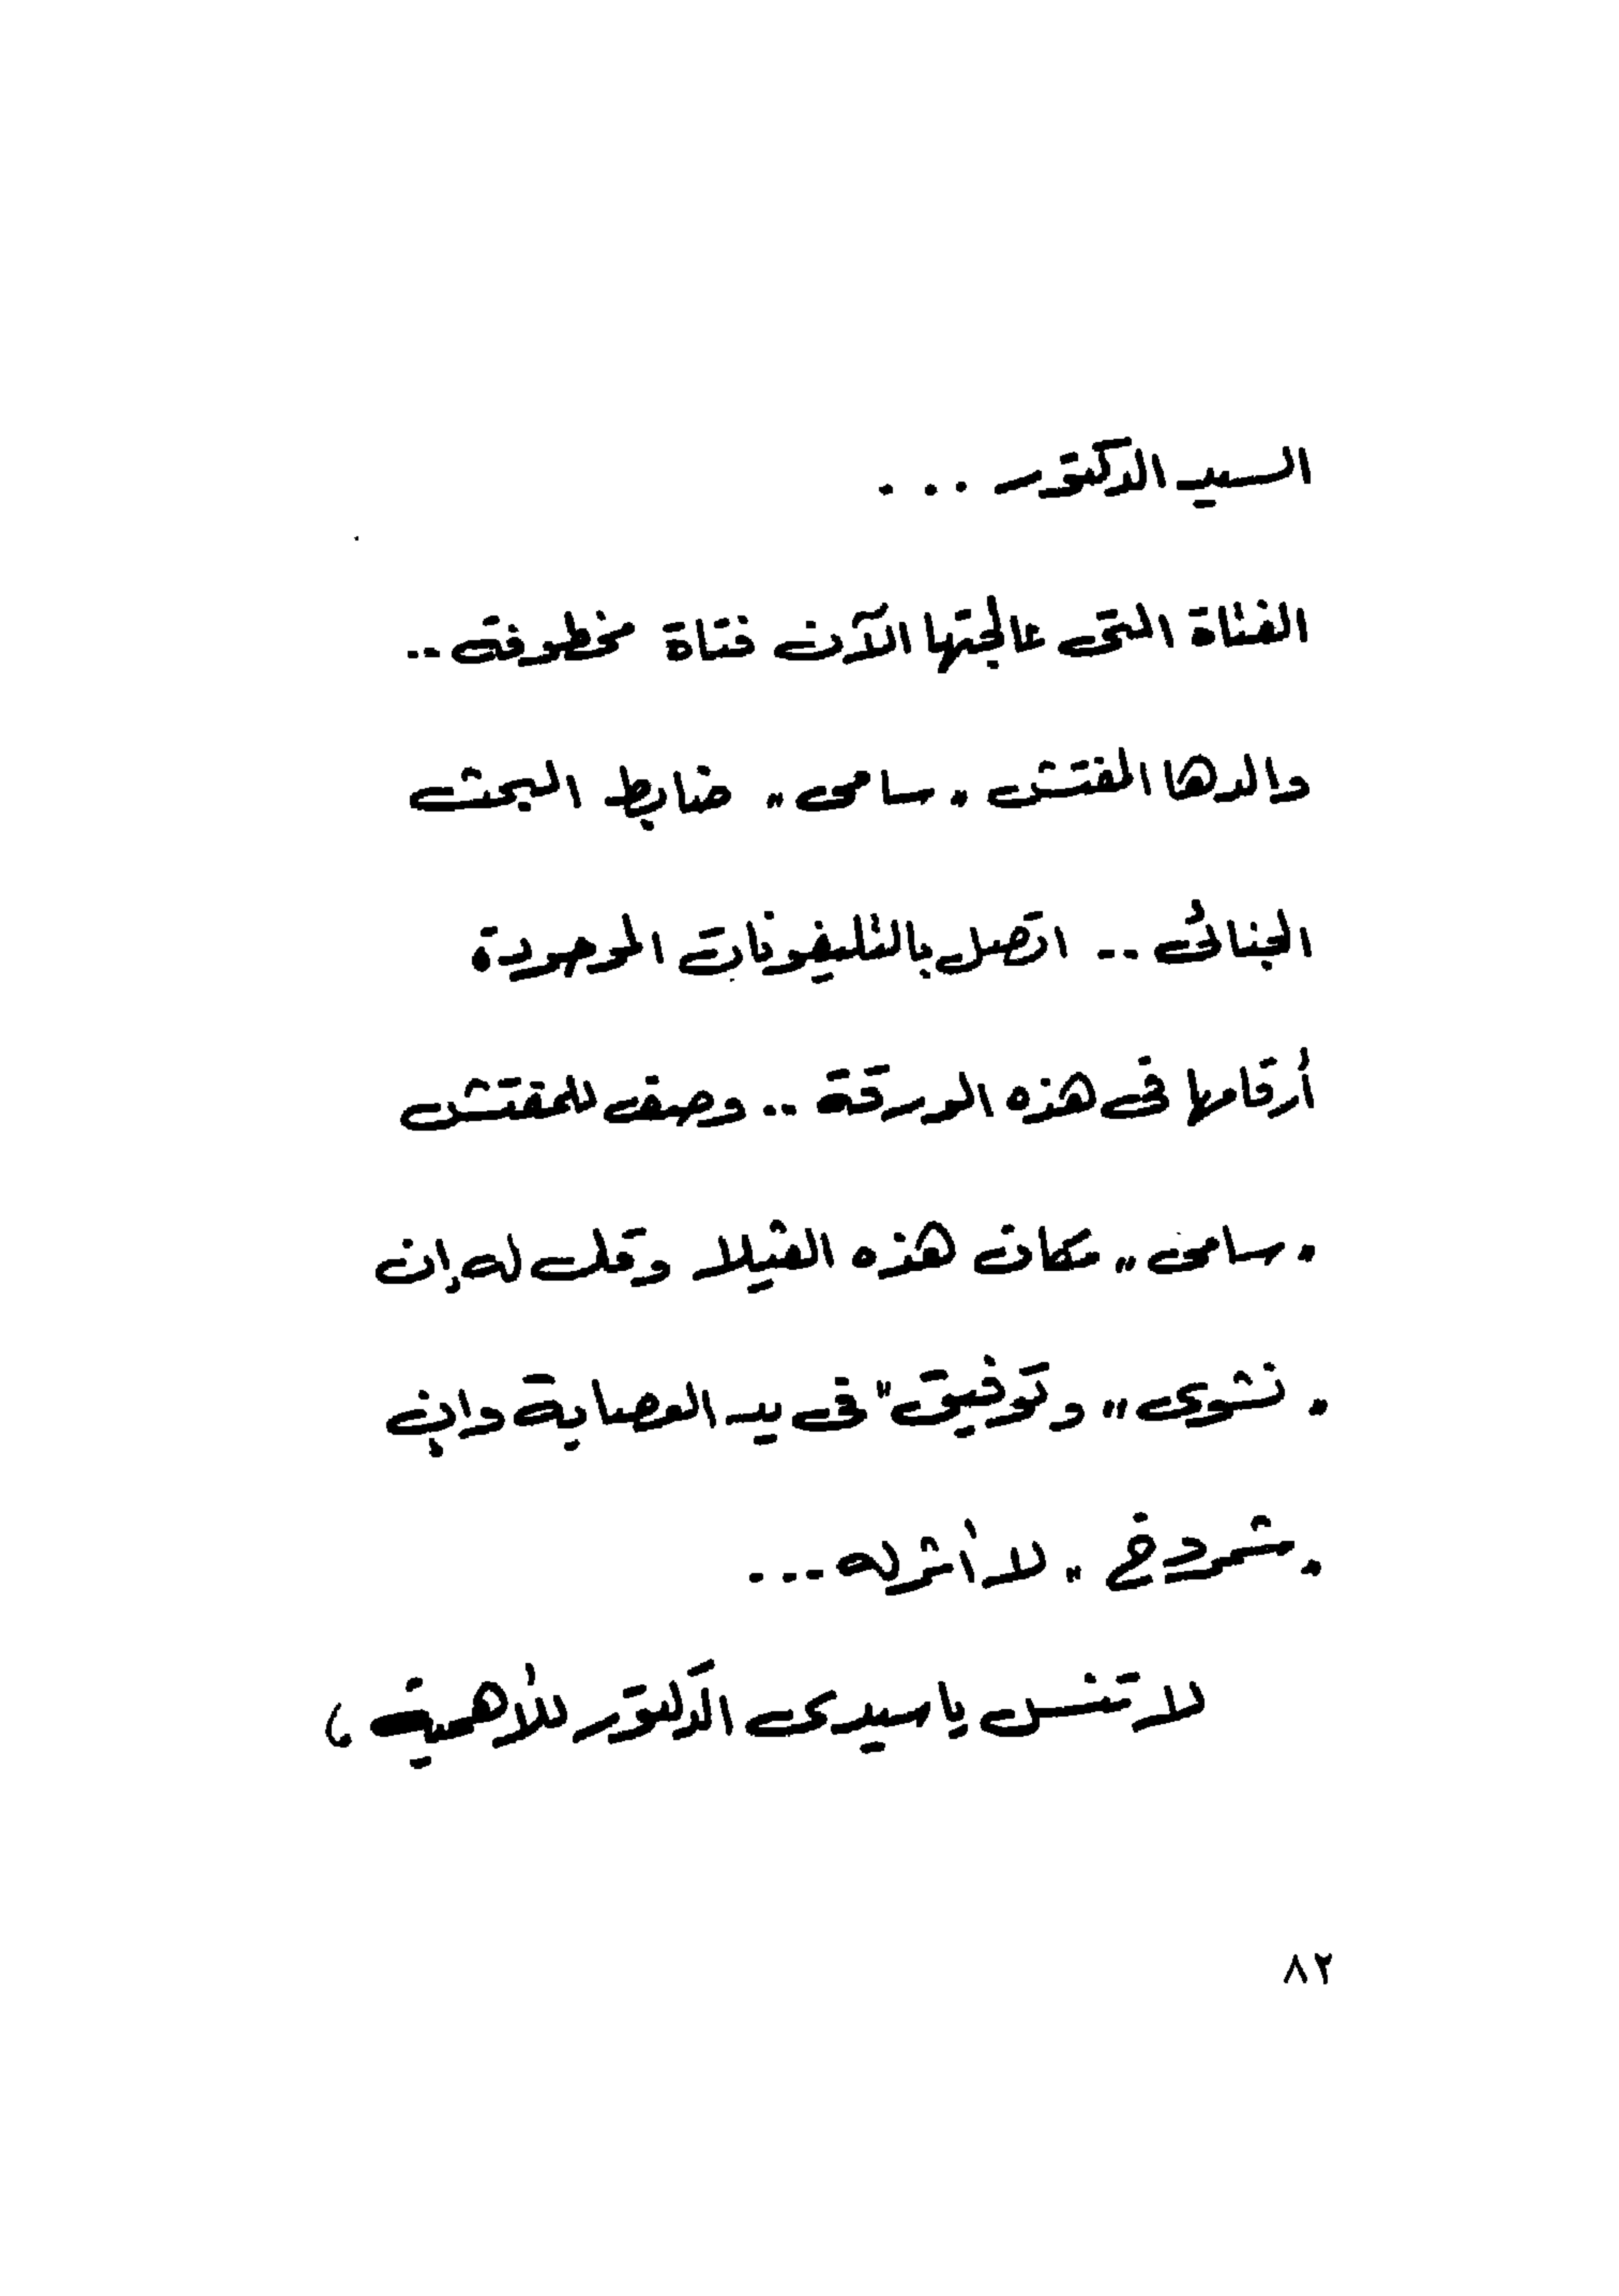 السيد الدكتور ...
الفتاة التى عالجتها الآن فتاة مخطوفة ..
والدها المفتش „ سامى „ ضابط البحث
الجنائى .. اتصل بالتليفونات الموجودة
أرقامها فى هذه الورقة .. وصف للمفتش
„ سامى „ مكان هذه الفيلا وقل له إن
„ نشوى „ و توفيق " فى يد العصابة وإن
„ شمردخ „ لا أثر له ...
لا تنس ياسيدى الدكتور للأهمية )
٨٢